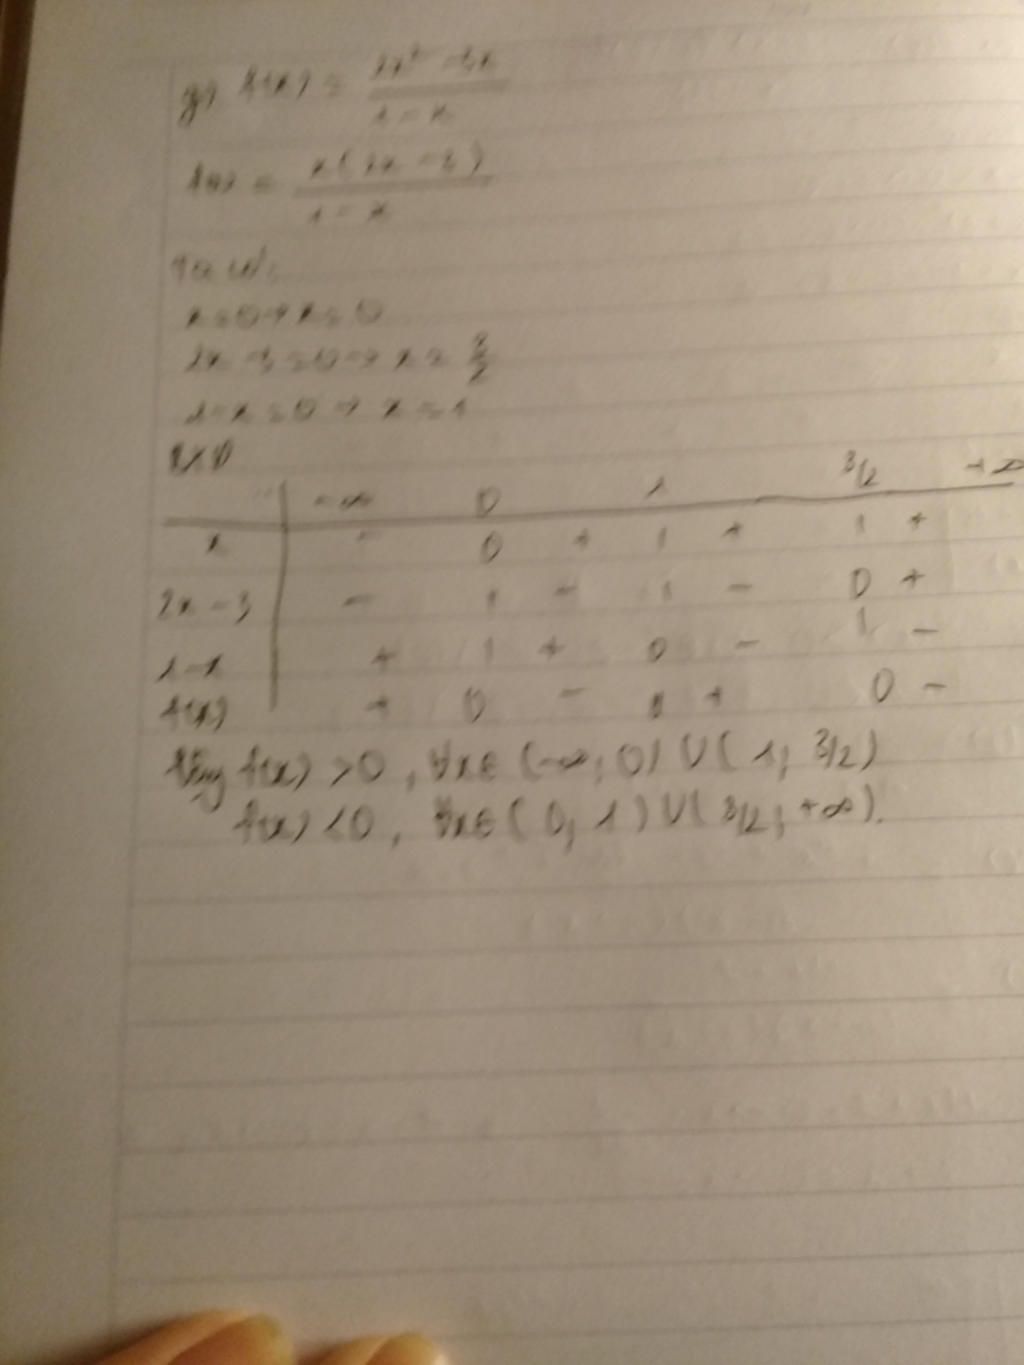 g) f(x) = 2x² - 3x / 1 - x
f(x) = x(2x - 3) / 1 - x
Ta có:
x = 0 → x = 0
2x - 3 = 0 → x = 3/2
1 - x = 0 → x = 1
BXD
-∞ 0 1 3/2 +∞
x - 0 + | + | +
2x - 3 - | - | - 0 +
1 - x + | + 0 - | -
f(x) + 0 - || + 0 -
Vậy f(x) > 0, ∀x ∈ (-∞; 0) ∪ (1; 3/2)
f(x) < 0, ∀x ∈ (0; 1) ∪ (3/2; +∞).